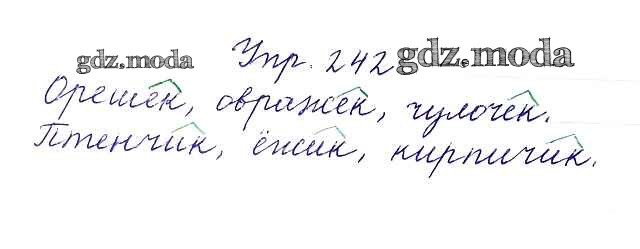 gdz.moda Упр. 242 gdz.moda
Орешек, овражек, чулочек.
Птенчик, ёжик, кирпичик.